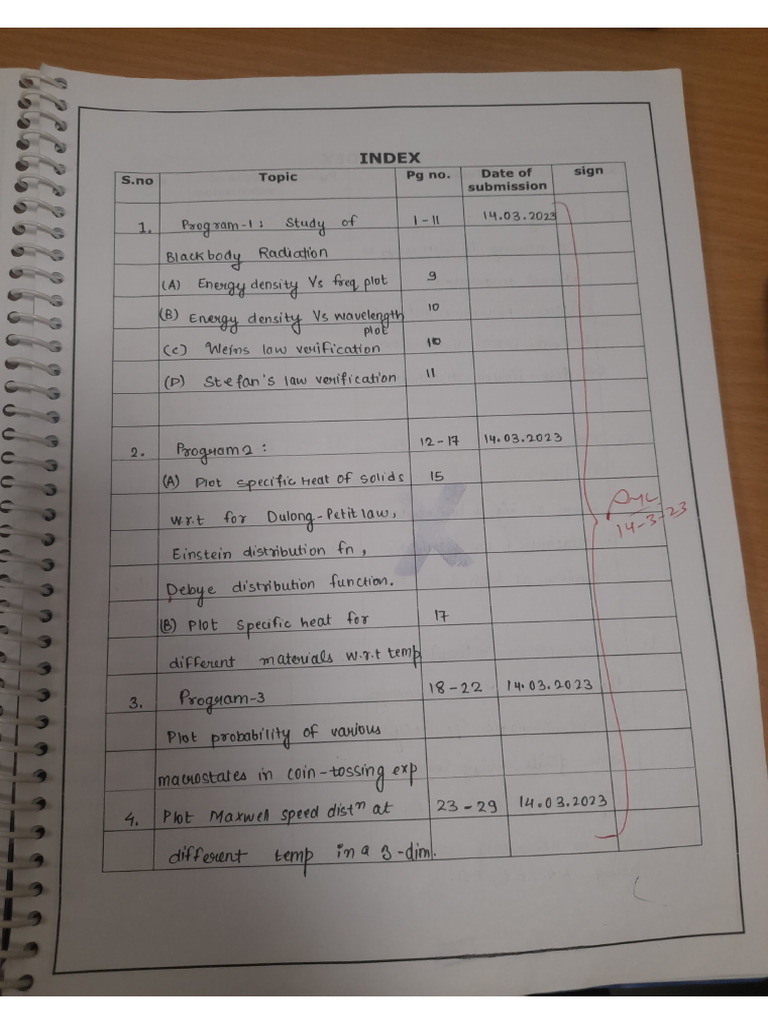 INDEX
S.no Topic Pg no. Date of submission sign
1. Program-1: Study of 1-11 14.03.2023
Blackbody Radiation
(A) Energy density Vs freq plot 9
(B) Energy density Vs wavelength plot 10
(C) Weins law verification 10
(D) Stefan's law verification 11
2. Program 2: 12-17 14.03.2023
(A) Plot specific Heat of solids 15
w.r.t for Dulong-Petit law,
Einstein distribution fn,
Debye distribution function.
(B) Plot specific heat for 17
different materials w.r.t temp
3. Program-3 18-22 14.03.2023
Plot probability of various
macrostates in coin-tossing exp
4. Plot Maxwell speed distⁿ at 23-29 14.03.2023
different temp in a 3-dim.
14-3-23